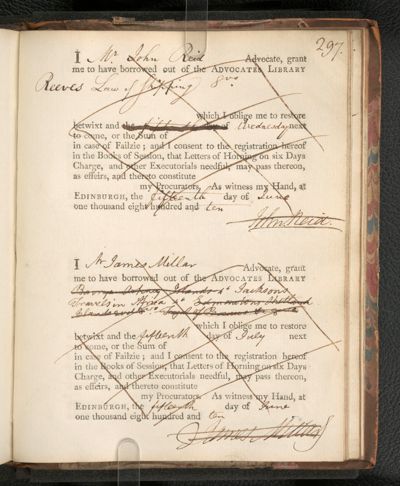 297.
I Mr John Reid Advocate, grant
me to have borrowed out of the ADVOCATES LIBRARY
Reeves Law of Shipping 8vo
which I oblige me to restore
betwixt and the of Wednesday next
to come, or the Sum of
in case of Failzie; and I consent to the registration hereof
in the Books of Session, that Letters of Horning on six Days
Charge, and other Executorials needful, may pass thereon,
as effeirs, and thereto constitute
my Procurators. As witness my Hand, at
EDINBURGH, the fifteenth day of June
one thousand eight hundred and ten
John Reid.
I Mr James Millar Advocate, grant
me to have borrowed out of the ADVOCATES LIBRARY
Islands 4to Jacksons
Travels in Africa 4to Edmonstons Shetland
Islands
which I oblige me to restore
betwixt and the fifteenth day of July next
to come, or the Sum of
in case of Failzie; and I consent to the registration hereof
in the Books of Session, that Letters of Horning on six Days
Charge, and other Executorials needful, may pass thereon,
as effeirs, and thereto constitute
my Procurators. As witness my Hand, at
EDINBURGH, the fifteenth day of June
one thousand eight hundred and ten
James Millar